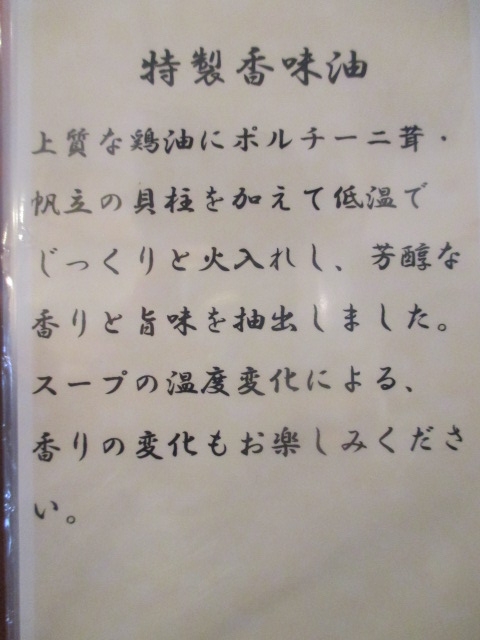 特製香味油
上質な鶏油にポルチーニ茸・
帆立の貝柱を加えて低温で
じっくりと火入れし、芳醇な
香りと旨味を抽出しました。
スープの温度変化による、
香りの変化もお楽しみくださ
い。